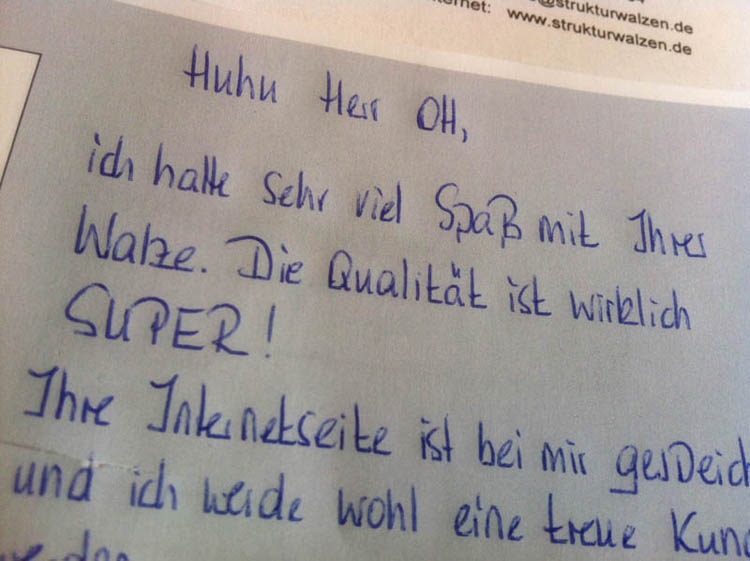 @strukturwalzen.de
ernet: www.strukturwalzen.de
Huhu Herr OH,
ich hatte sehr viel Spaß mit Ihrer
Walze. Die Qualität ist wirklich
SUPER!
Ihre Internetseite ist bei mir gespeich
und ich werde wohl eine treue Kund
werden